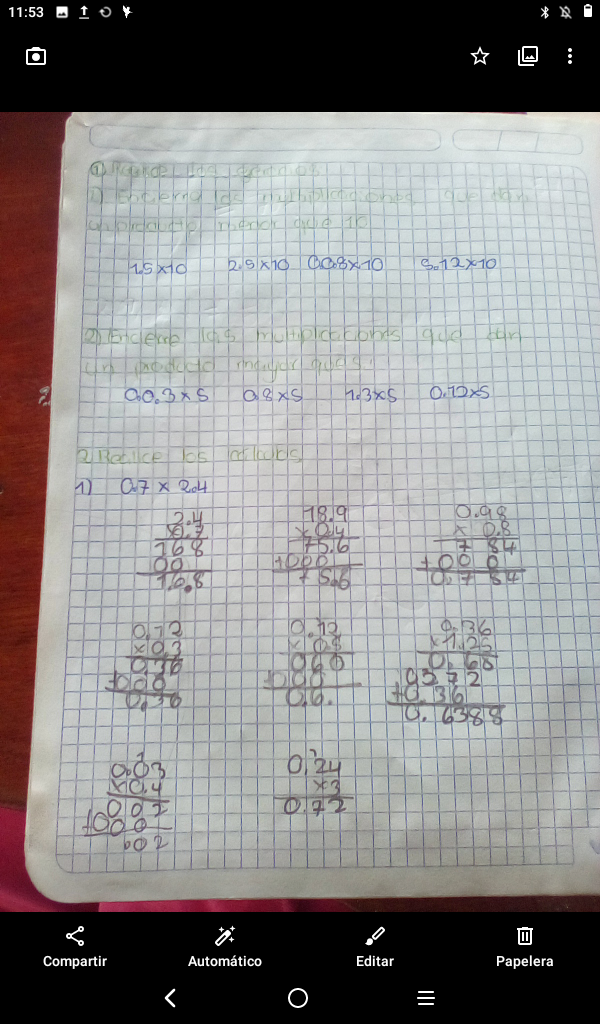 11:53
1) Encierra las multiplicaciones que dan
un producto menor que 10
1.5x10 2.5x10 0.0.8x10 5.12x10
2) Encierre las multiplicaciones que dan
un producto mayor que 5.
0.0.3x5 0.8x5 1.3x5 0.12x5
2. Realice los cálculos
1) 0.7 x 2.4
2.4 18.9 0.98
x0.7 x0.4 x 0.8
168 75.6 7 84
00 +000 +00 0
1.6.8 75.6 0.7 84
0.12 0.12 0.36
x0.3 x
0.36 060
+000 000
0.36 0.6. 0.6388
0.03 0.24
x0.4 x3
002 0.72
+000
002
Compartir Automático Editar Papelera